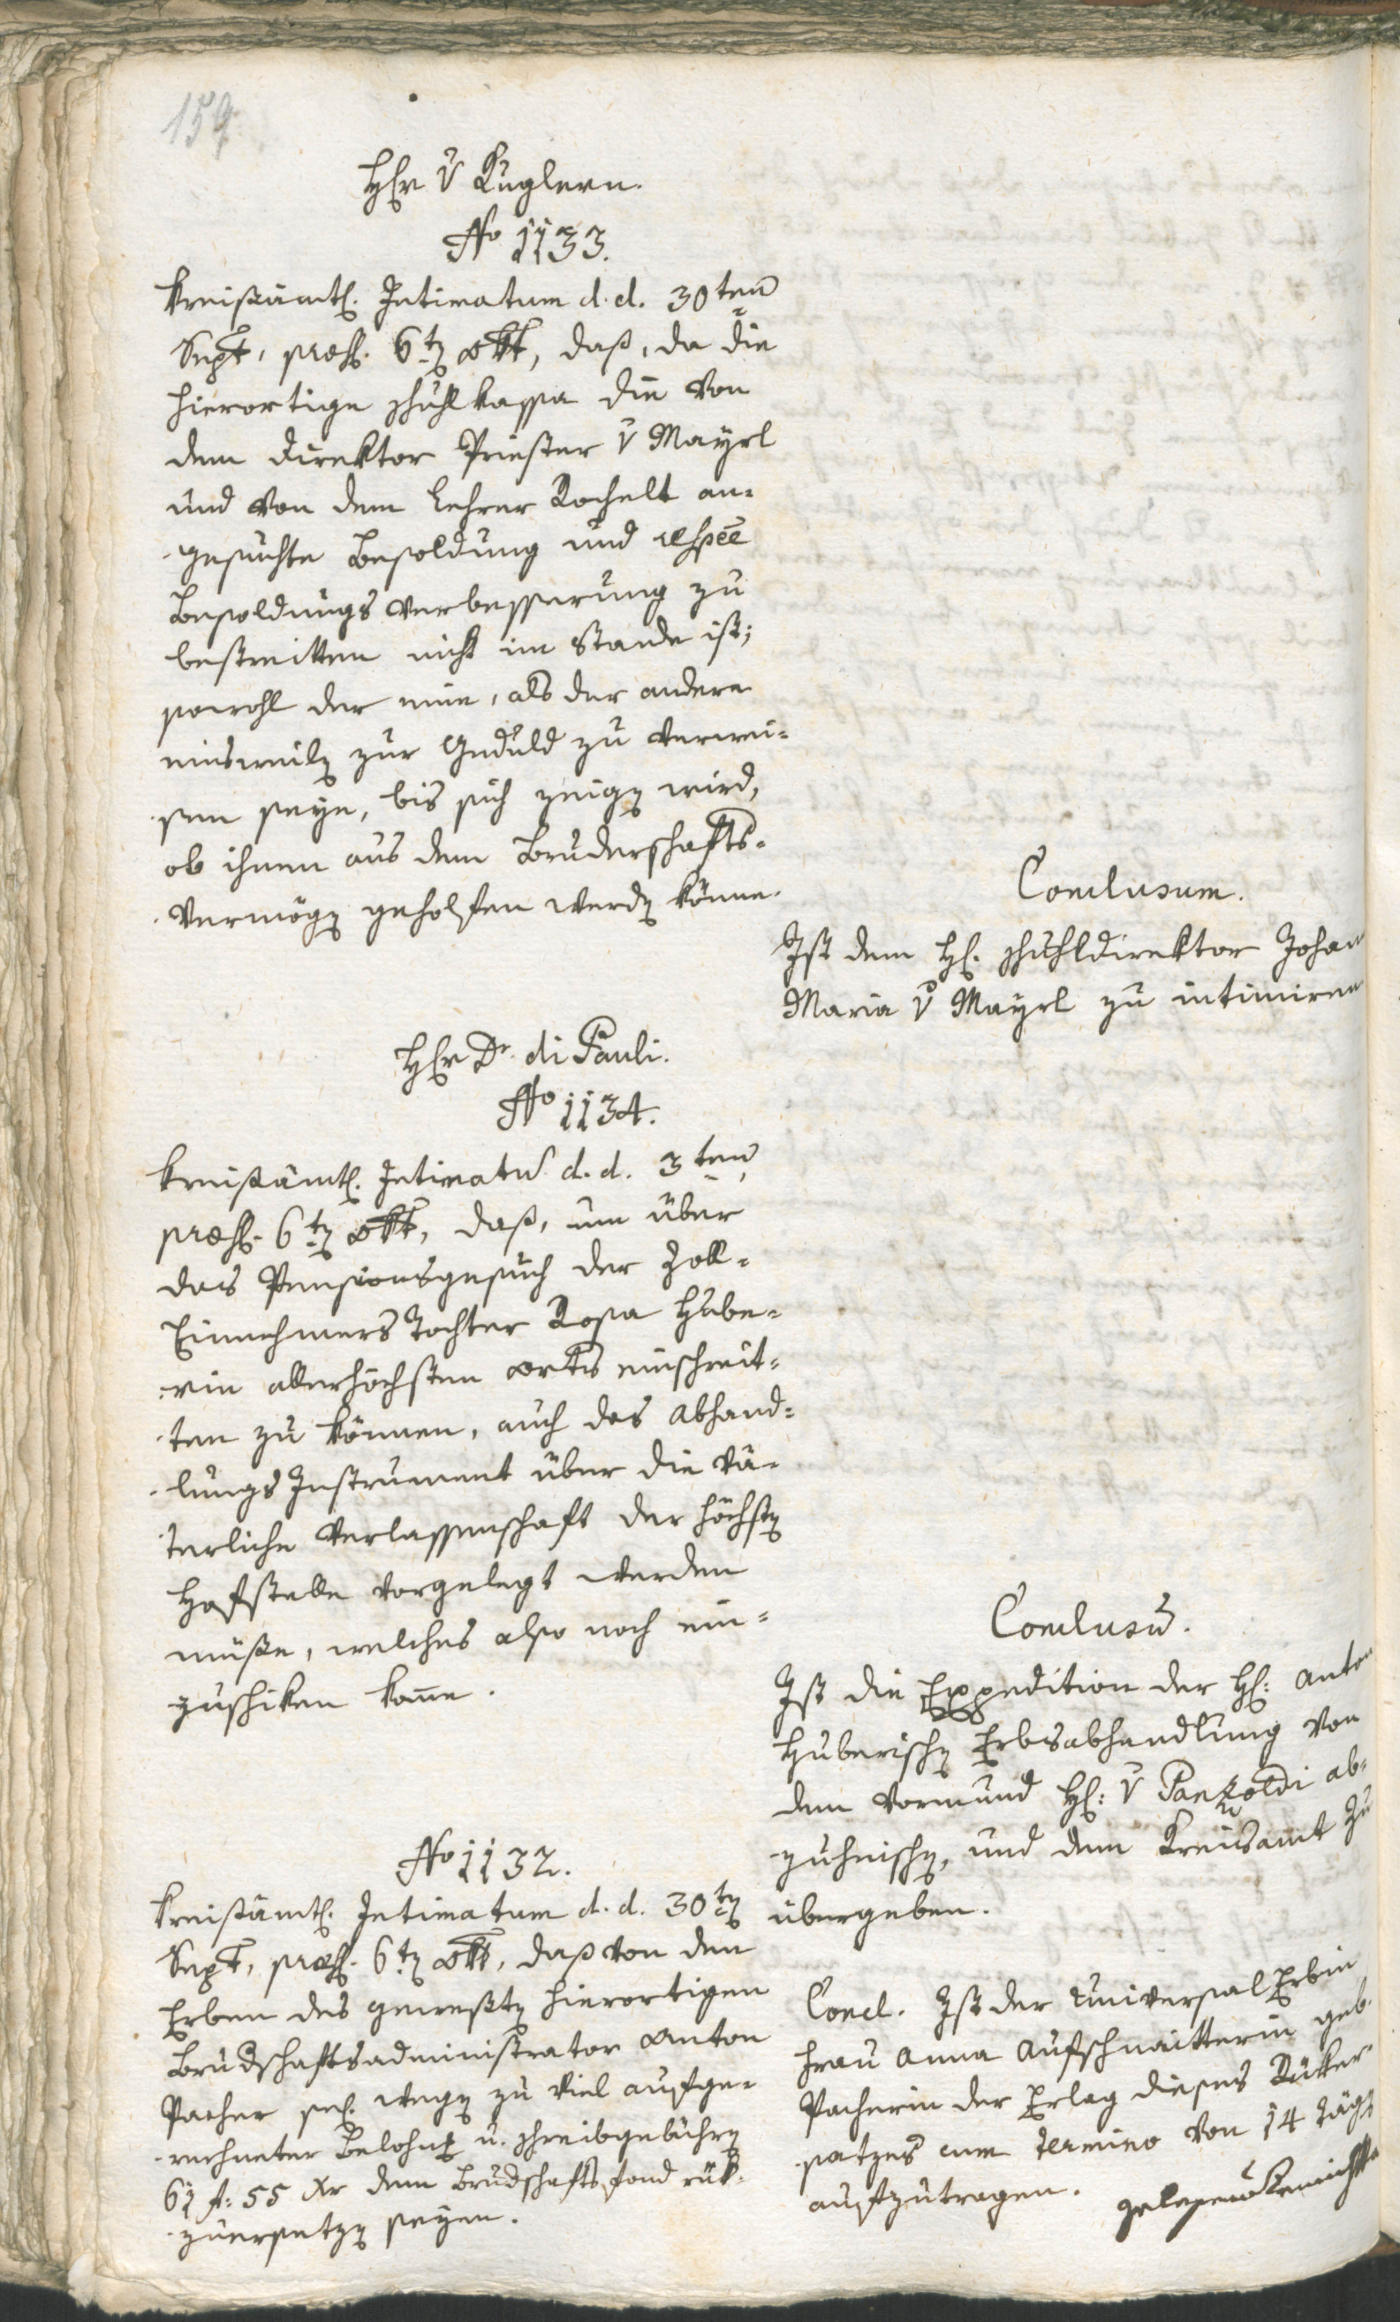 159
Hr v Kuglern.
No 1133.
Kreisämtl. Intimatum d. d. 30ten
Sept, præs. 6tn Okt, daß, da die
hierortige Schulkassa die von
dem Direktor Priester v Mayrl
und von dem Lehrer Rochelt an-
gesuchte Besoldung und respe
Besoldungs Verbesserung zu
bestreitten nicht im Stande ist;
sowohl der eine, als der andere
einsweiln zur Geduld zu verwei-
sen seye, bis sich zeign wird,
ob ihnen aus dem Bruderschafts-
Vermögn geholfen werdn könne.
Conclusum.
Ist dem H. Schuhldirektor Johan
Maria v Mayrl zu intimiren
Hr Dr. di Pauli.
No 1134.
Kreisämtl. Intimatu d. d. 3ten,
præs. 6tn Okt, daß, um über
das Pensionsgesuch der Zoll-
Einnehmers Tochter Rosa Hube-
rin allerhöchsten Orts einschreit-
ten zu können, auch das Abhand-
lungs Instrument über die Vä-
terliche Verlassenschaft der höchstn
Hofstelle vorgelegt werden
müße, welches also noch ein-
zuschiken kome.
Conclusu.
Ist die Expedition der H: Anton
Huberischn Erbsabhandlung von
dem Vormund H: v Panzoldi ab-
zuheischn, und dem Kreisamt zu
übergeben.
No 1132.
Kreisämtl. Intimatum d. d. 30tn
Sept, præs. 6tn Okt, daß von den
Erben des gewestn hierortigen
Brudschaftsadministrator Anton
Pacher sel. wegn zu viel aufge-
rechneter Belohng u. Schreibgebührn
61 f: 55 xr dem Brudschaftsfond rük-
zuersetzn seyen.
Concl. Ist der Universal Erbin
Frau Anna Aufschnaitterin geb.
Pacherin der Erlag dieses Rüker-
satzes cum termino von 14 Tägn
aufzutragen.